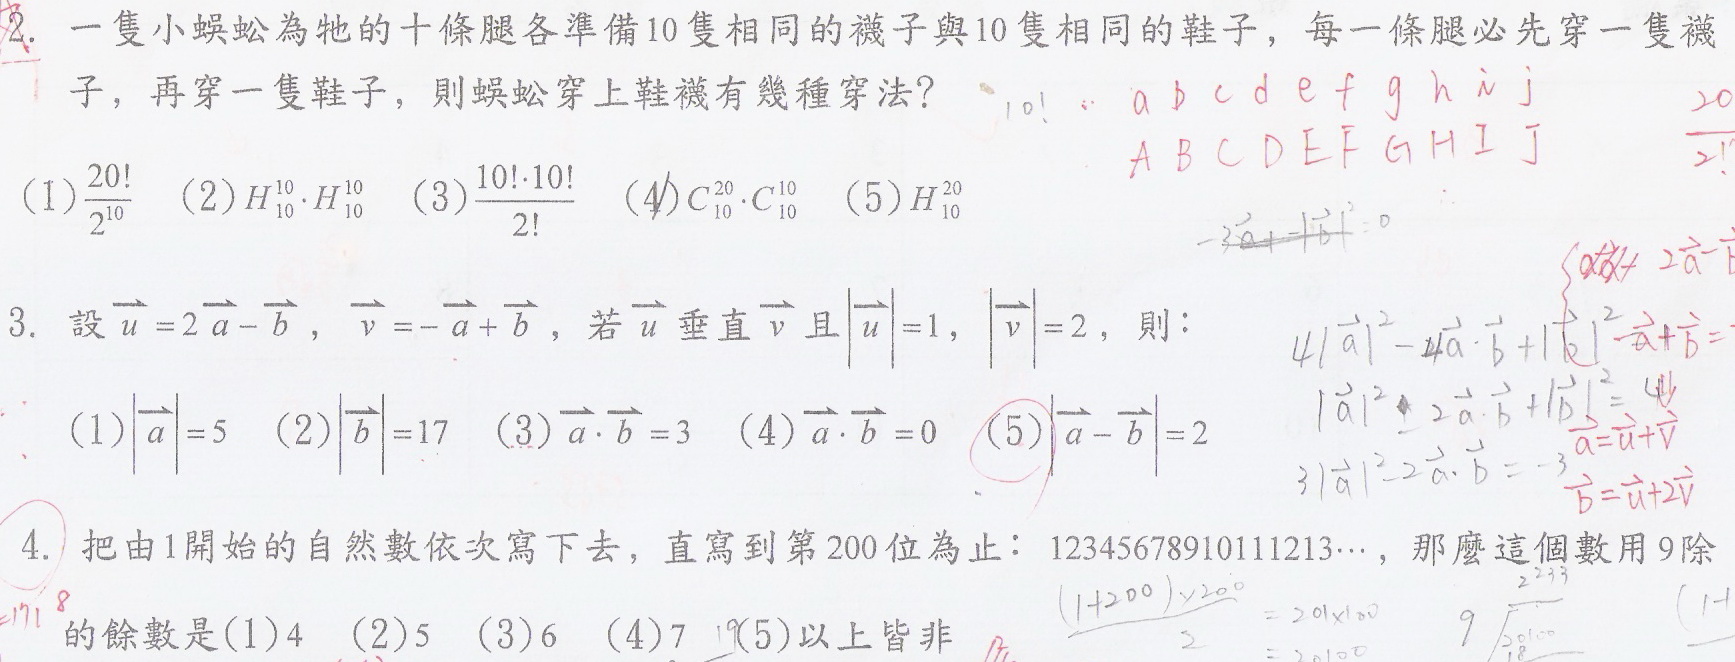 2. 一隻小蜈蚣為牠的十條腿各準備10隻相同的襪子與10隻相同的鞋子，每一條腿必先穿一隻襪
子，再穿一隻鞋子，則蜈蚣穿上鞋襪有幾種穿法？
10! a b c d e f g h i j
A B C D E F G H I J
20
2!
(1) 20!/2^10 (2) H^10_10·H^10_10 (3) 10!·10!/2! (4) C^20_10·C^10_10 (5) H^20_10
3. 設 u⃗ =2a⃗ − b⃗，v⃗ =−a⃗ + b⃗，若 u⃗ 垂直 v⃗ 且 |u⃗|=1，|v⃗|=2，則：
(1) |a⃗|=5 (2) |b⃗|=17 (3) a⃗·b⃗ =3 (4) a⃗·b⃗ =0 (5) |a⃗ − b⃗|=2
2a⃗−b⃗
4|a⃗|²−4a⃗·b⃗+|b⃗|²
−a⃗+b⃗=
|a⃗|² − 2a⃗·b⃗+|b⃗|² = 4
a⃗=u⃗+v⃗
3|a⃗|²−2a⃗·b⃗ = −3
b⃗=u⃗+2v⃗
4. 把由1開始的自然數依次寫下去，直寫到第200位為止：12345678910111213…，那麼這個數用9除
的餘數是(1)4 (2)5 (3)6 (4)7 (5)以上皆非
=171 8
(1+200)×200/2 = 201×100
= 20100
2233
9 20100
18